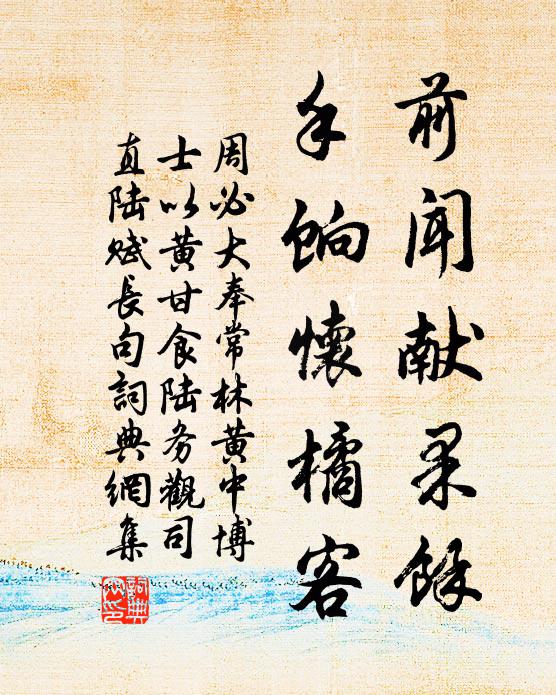 前聞献果餘
手餉懷橘客
周必大奉常林黄中博
士以黄甘食陸务觀司
直陸賦長句詞典網集